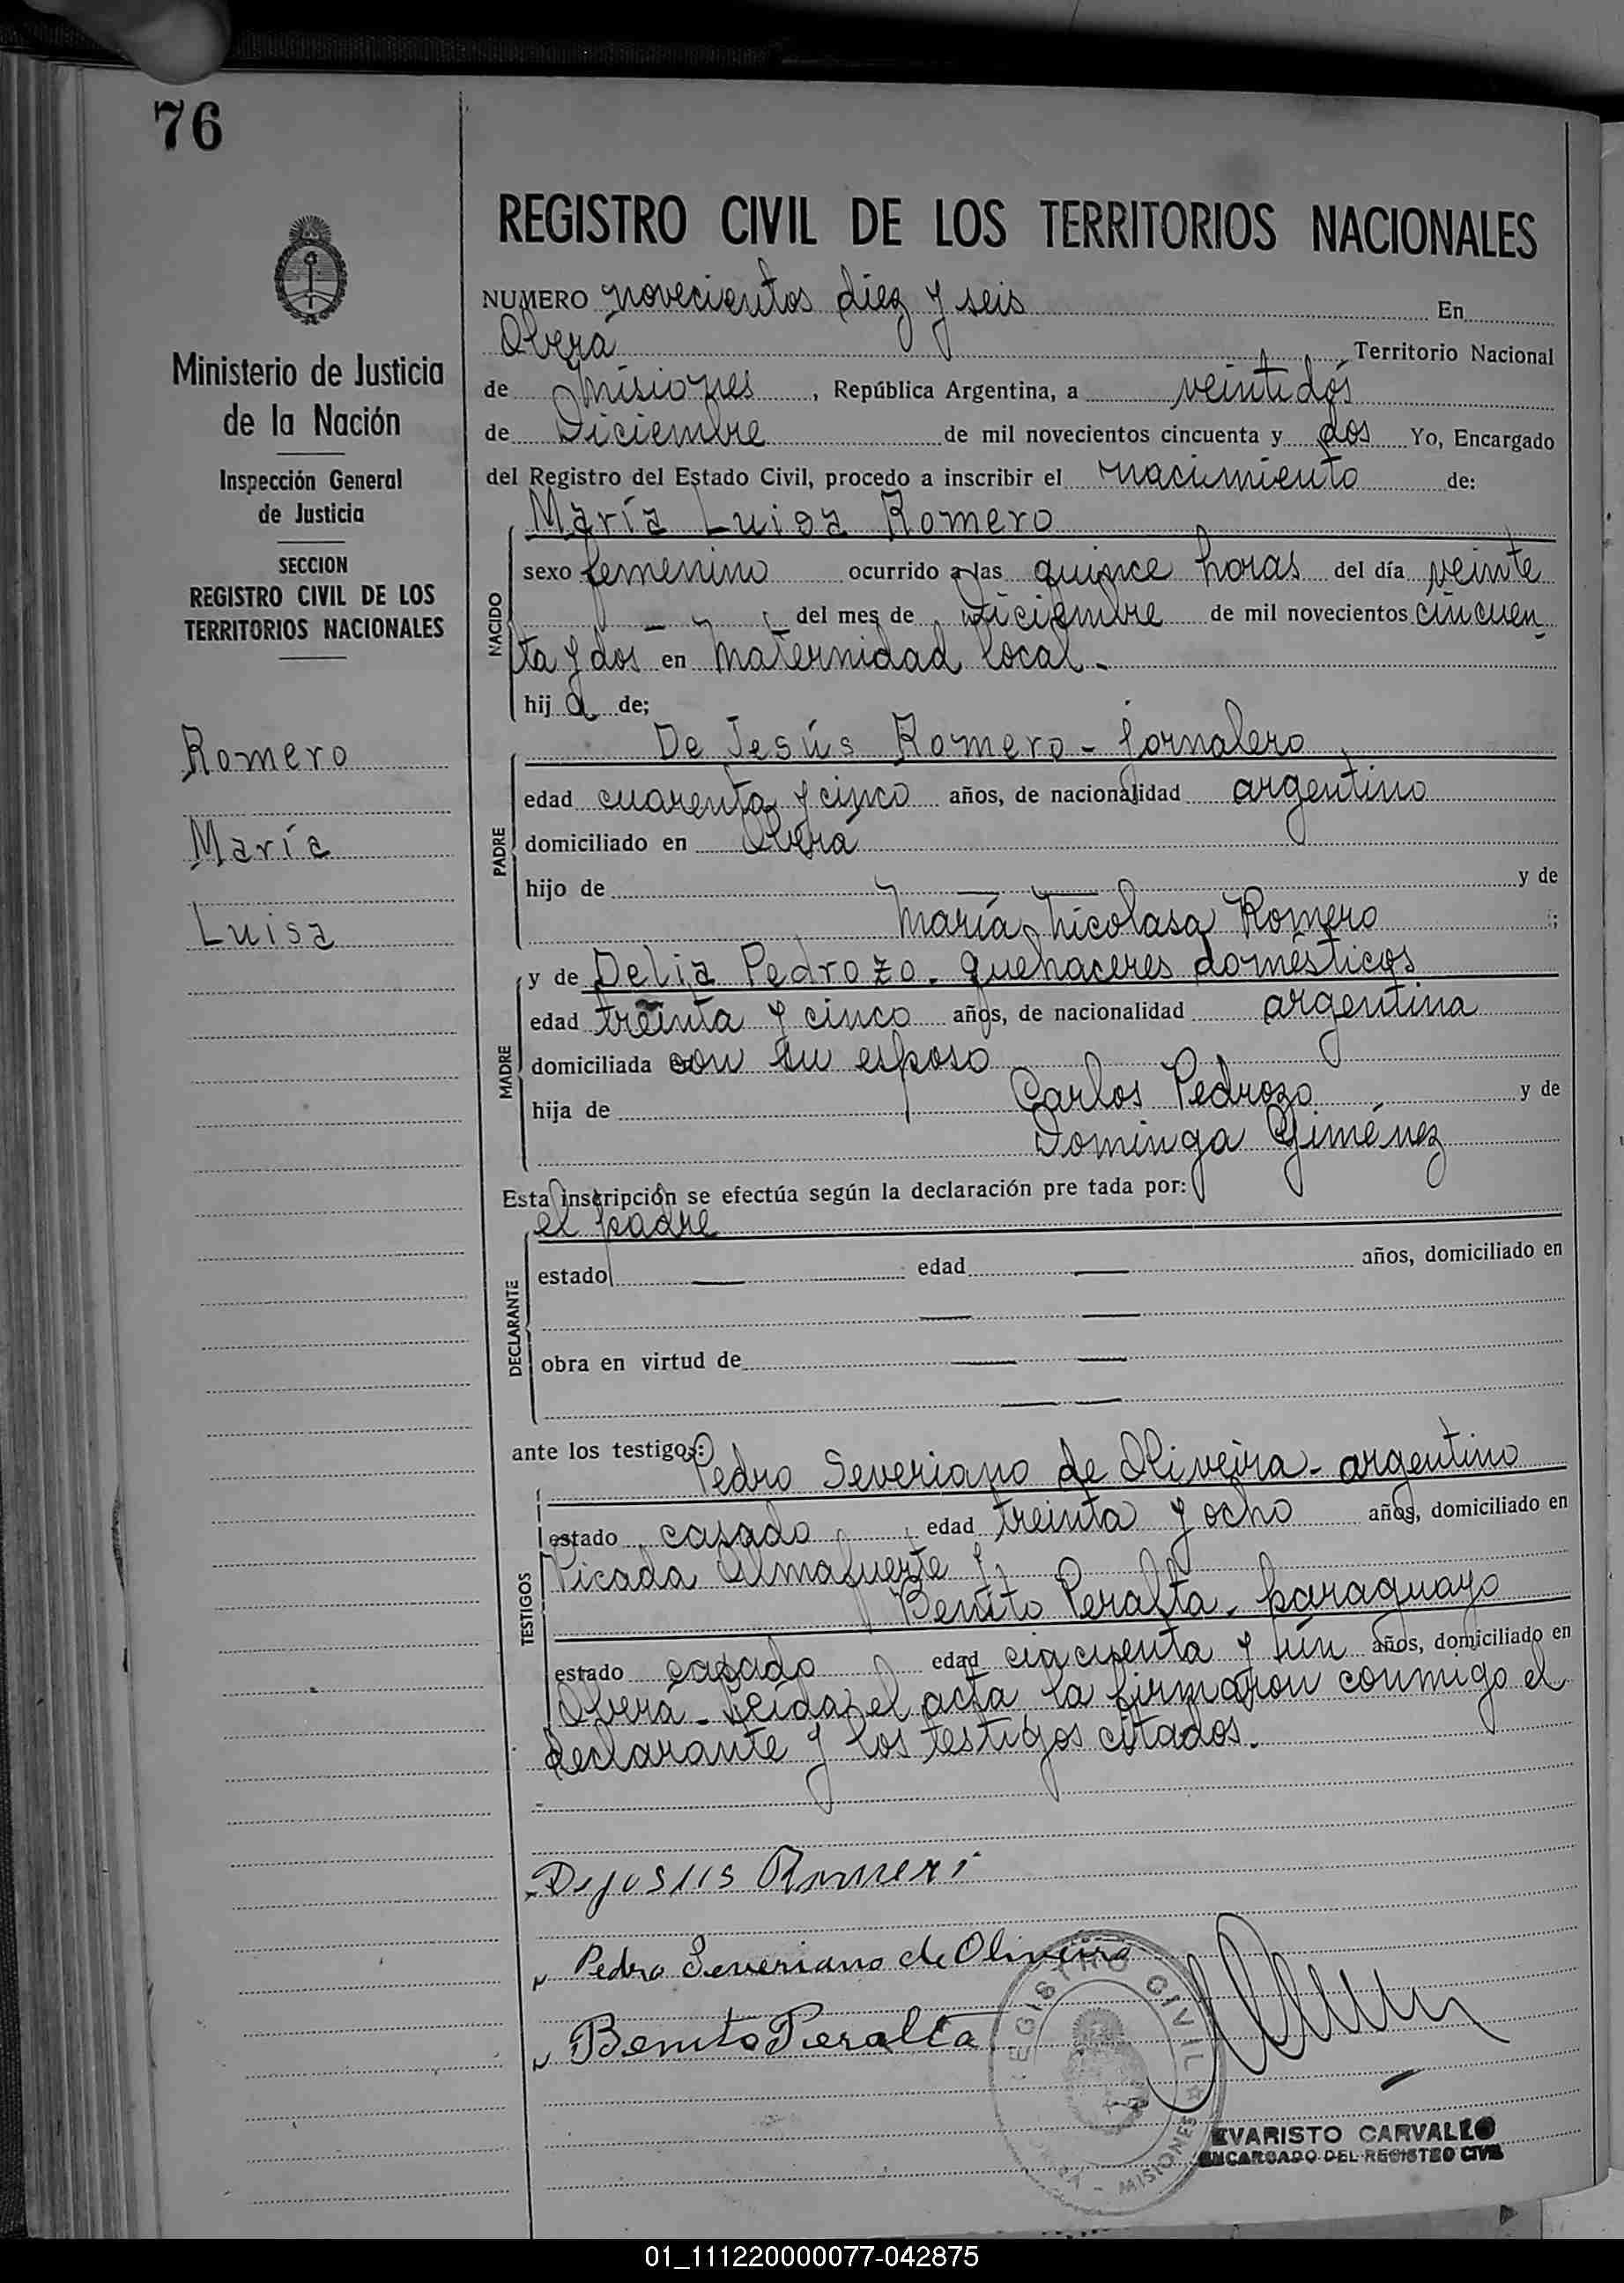 76
REGISTRO CIVIL DE LOS TERRITORIOS NACIONALES
Ministerio de Justicia
de la Nación
Inspección General
de Justicia
SECCION
REGISTRO CIVIL DE LOS
TERRITORIOS NACIONALES
Romero
María
Luisa
NUMERO novecientos diez y seis En
Oberá Territorio Nacional
de Misiones, República Argentina, a veintidós
de Diciembre de mil novecientos cincuenta y dos Yo, Encargado
del Registro del Estado Civil, procedo a inscribir el nacimiento de:
NACIDO
María Luisa Romero
sexo femenino ocurrido a las quince horas del día veinte
del mes de Diciembre de mil novecientos cincuen
ta y dos en Maternidad local.-
hija de;
PADRE
De Jesús Romero - jornalero
edad cuarenta y cinco años, de nacionalidad argentino
domiciliado en Oberá
hijo de y de
María Nicolasa Romero ;
MADRE
y de Delia Pedrozo - quehaceres domésticos
edad treinta y cinco años, de nacionalidad argentina
domiciliada con su esposo
hija de Carlos Pedrozo y de
Dominga Giménez
Esta inscripción se efectúa según la declaración pre tada por:
el padre
DECLARANTE
estado — edad — años, domiciliado en
— —
obra en virtud de — —
— —
ante los testigos:
Pedro Severiano de Oliveira - argentino
TESTIGOS
estado casado edad treinta y ocho años, domiciliado en
Picada Almafuerte y
Benito Peralta - paraguayo
estado casado edad cincuenta y ún años, domiciliado en
Oberá - Leída el acta la firmaron conmigo el
declarante y los testigos citados.
Dejesus Romero
Pedro Severiano de Oliveira
Benito Peralta
REGISTRO CIVIL
MISIONES
EVARISTO CARVALLO
ENCARGADO DEL REGISTRO CIVIL
01_111220000077-042875